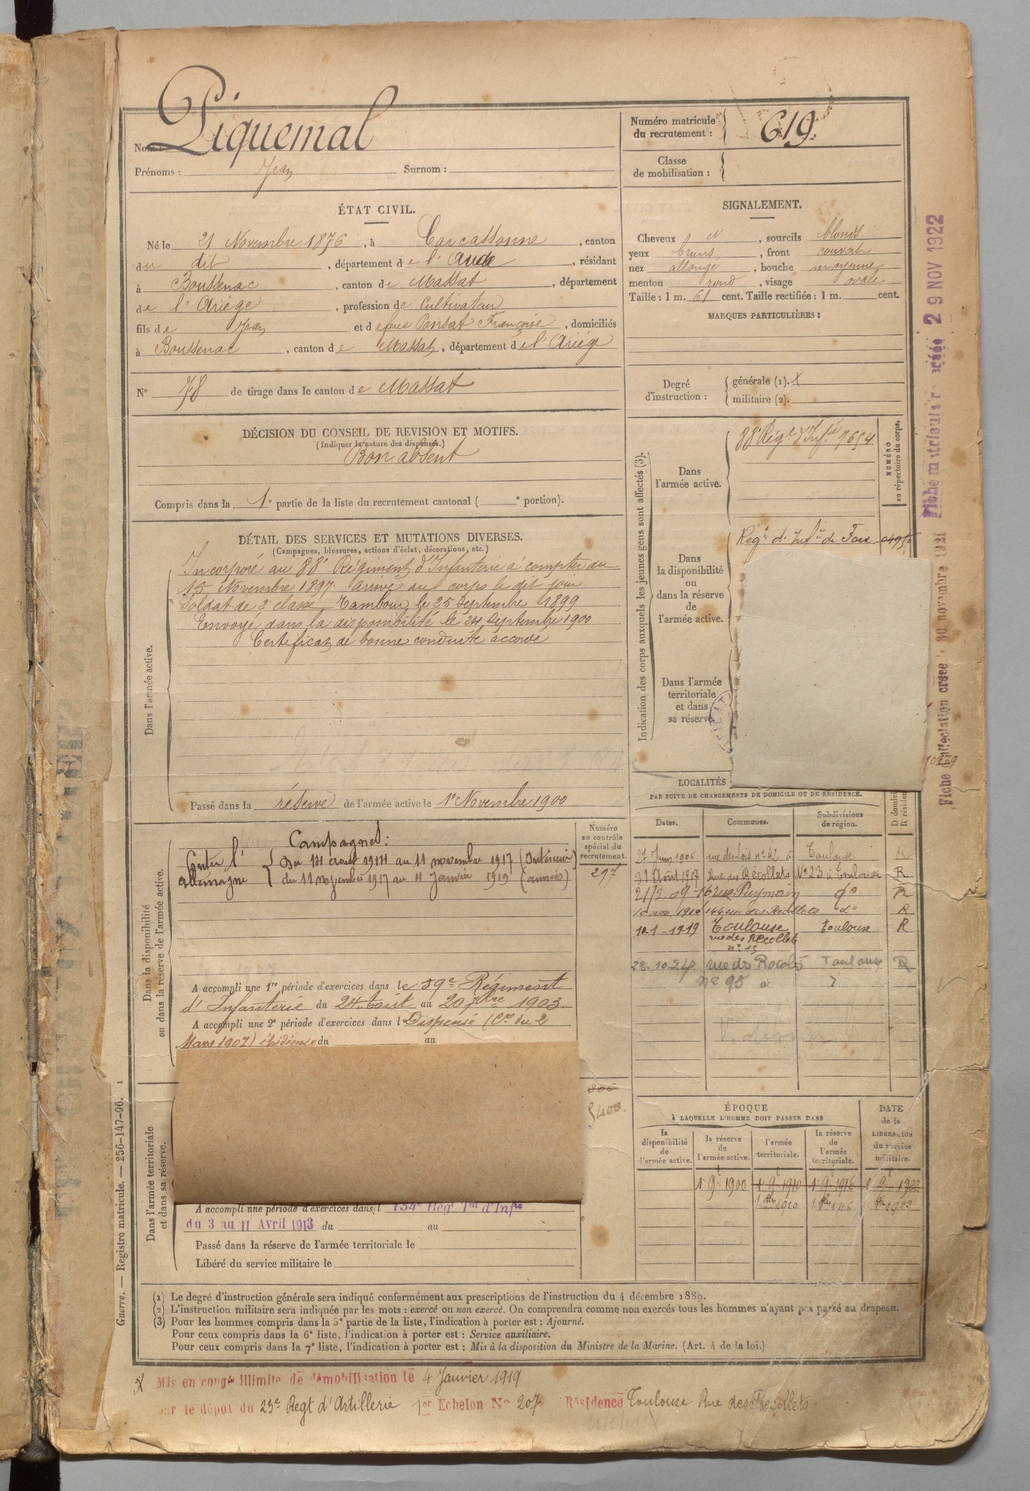 Nom : Piquemal
Prénoms : Jean Surnom :
Numéro matricule du recrutement : 619.
Classe de mobilisation :
ÉTAT CIVIL.
Né le 21 Novembre 1876, à Carcassonne, canton
du dit, département de l'Aude, résidant
à Boussenac, canton de Massat, département
de l'Ariége, profession de Cultivateur
fils de Jean et de Françoise, domiciliés
à Boussenac, canton de Massat, département de l'Ariége
N° 78 de tirage dans le canton de Massat
SIGNALEMENT.
Cheveux, sourcils blonds
yeux bruns, front couvert
nez allongé, bouche moyenne
menton rond, visage ovale
Taille : 1 m. 61 cent. Taille rectifiée : 1 m. cent.
MARQUES PARTICULIÈRES :
Degré d'instruction : générale (1).
militaire (2).
DÉCISION DU CONSEIL DE REVISION ET MOTIFS.
(Indiquer la nature des dispenses.)
Bon absent
Compris dans la 1e partie de la liste du recrutement cantonal ( e portion).
DÉTAIL DES SERVICES ET MUTATIONS DIVERSES.
(Campagnes, blessures, actions d'éclat, décorations, etc.)
Dans l'armée active.
Incorporé au 88e Régiment d'Infanterie à compter du
15 Novembre 1897 Arrivé au corps le dit jour
Soldat de 2e classe, Tambour le 25 Septembre 1899
Envoyé dans la disponibilité le 24 Septembre 1900
Certificat de bonne conduite accordé
Passé dans la réserve de l'armée active le 1er Novembre 1900
Indication des corps auxquels les jeunes gens sont affectés (3).
Dans l'armée active.
88e Régt d'Infie 7654
NUMÉRO au répertoire du corps.
Dans la disponibilité ou dans la réserve de l'armée active.
Régt d'Infie de Foix
Dans l'armée territoriale et dans sa réserve
Dans la disponibilité ou dans la réserve de l'armée active.
Campagnes :
Contre l'Allemagne
du 14 août 1914 au 11 novembre 1917 (Intérieur)
du 11 novembre 1917 au 11 Janvier 1919 (armées)
Numéro au contrôle spécial du recrutement.
297
A accompli une 1re période d'exercices dans le 59e Régiment
d'Infanterie du 24 Août au 20 7bre 1903
A accompli une 2e période d'exercices dans l Dispensé (Cre du 2
Mars 1907) du au
LOCALITÉS
PAR SUITE DE CHANGEMENTS DE DOMICILE OU DE RÉSIDENCE.
Dates. Communes. Subdivisions de région.
Juin 1906 Toulouse R
31 Août 1907 Rue des Récollets N°23 à Toulouse R
21/2 09 do R
1910 do R
10-1-1919 Toulouse rue des Récollets n° 15 Toulouse R
23.10.24 rue des Récolets Toulouse R
n° 95
Dans l'armée territoriale et dans sa réserve.
5400.
A accompli une période d'exercices dans l 134e Régt Ter d'Infie
du 3 au 11 Avril 1913 du au
Passé dans la réserve de l'armée territoriale le
Libéré du service militaire le
ÉPOQUE
À LAQUELLE L'HOMME DOIT PASSER DANS
la disponibilité de l'armée active.
la réserve de l'armée active.
l'armée territoriale.
la réserve de l'armée territoriale.
DATE de la LIBÉRATION du service militaire.
1 9 1900 1 9 1910 1 9 1916 1922
(1) Le degré d'instruction générale sera indiqué conformément aux prescriptions de l'instruction du 4 décembre 1889.
(2) L'instruction militaire sera indiquée par les mots : exercé ou non exercé. On comprendra comme non exercés tous les hommes n'ayant pas passé au drapeau.
(3) Pour les hommes compris dans la 5e partie de la liste, l'indication à porter est : Ajourné.
Pour ceux compris dans la 6e liste, l'indication à porter est : Service auxiliaire.
Pour ceux compris dans la 7e liste, l'indication à porter est : Mis à la disposition du Ministre de la Marine. (Art. 4 de la loi.)
Mis en congé illimité de démobilisation le 4 Janvier 1919
par le dépot du 23e Regt d'Artillerie 1er Echelon N° 207 Résidence Toulouse Rue des Récollets
Guerre. — Registre matricule. — 256-147-96.
Fiche matriculaire créée 29 NOV 1922
Fiche d'affectation créée 30 novembre 1921